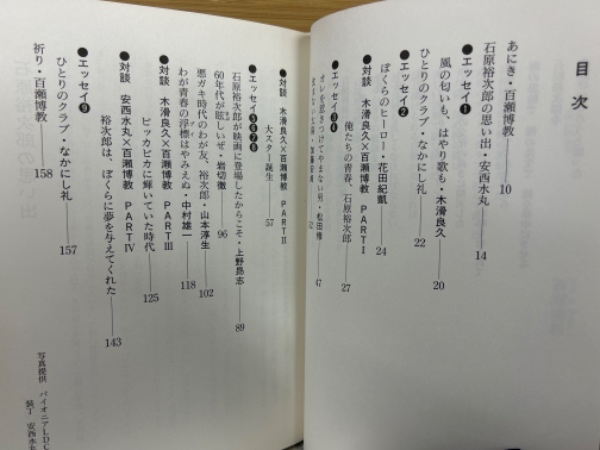 目次
あにき・百瀬博教――10
●エッセイ❶
石原裕次郎の思い出・安西水丸――14
風の匂いも、はやり歌も・木滑良久――20
ひとりのクラブ・なかにし礼――22
●エッセイ❷
ぼくらのヒーロー・花田紀凱――24
●対談 木滑良久×百瀬博教 PARTⅠ
俺たちの青春、石原裕次郎――27
●エッセイ❸❹
オレを惹きつけてやまない男・松田修――47
52
●対談 木滑良久×百瀬博教 PARTⅡ
大スター誕生――57
●エッセイ❺❻❼❽
石原裕次郎が映画に登場したからこそ・上野昻志――89
60年代が眩しいぜ・岩切徹――96
悪ガキ時代のわが友、裕次郎・山本淳生――102
わが青春の浮標はやみえぬ・中村雄一――118
●対談 木滑良久×百瀬博教 PARTⅢ
ピッカピカに輝いていた時代――125
●対談 安西水丸×百瀬博教 PARTⅣ
裕次郎は、ぼくらに夢を与えてくれた――143
●エッセイ❾
ひとりのクラブ・なかにし礼――157
祈り・百瀬博教――158
写真提供 パイオニアLDC
装丁 安西水丸